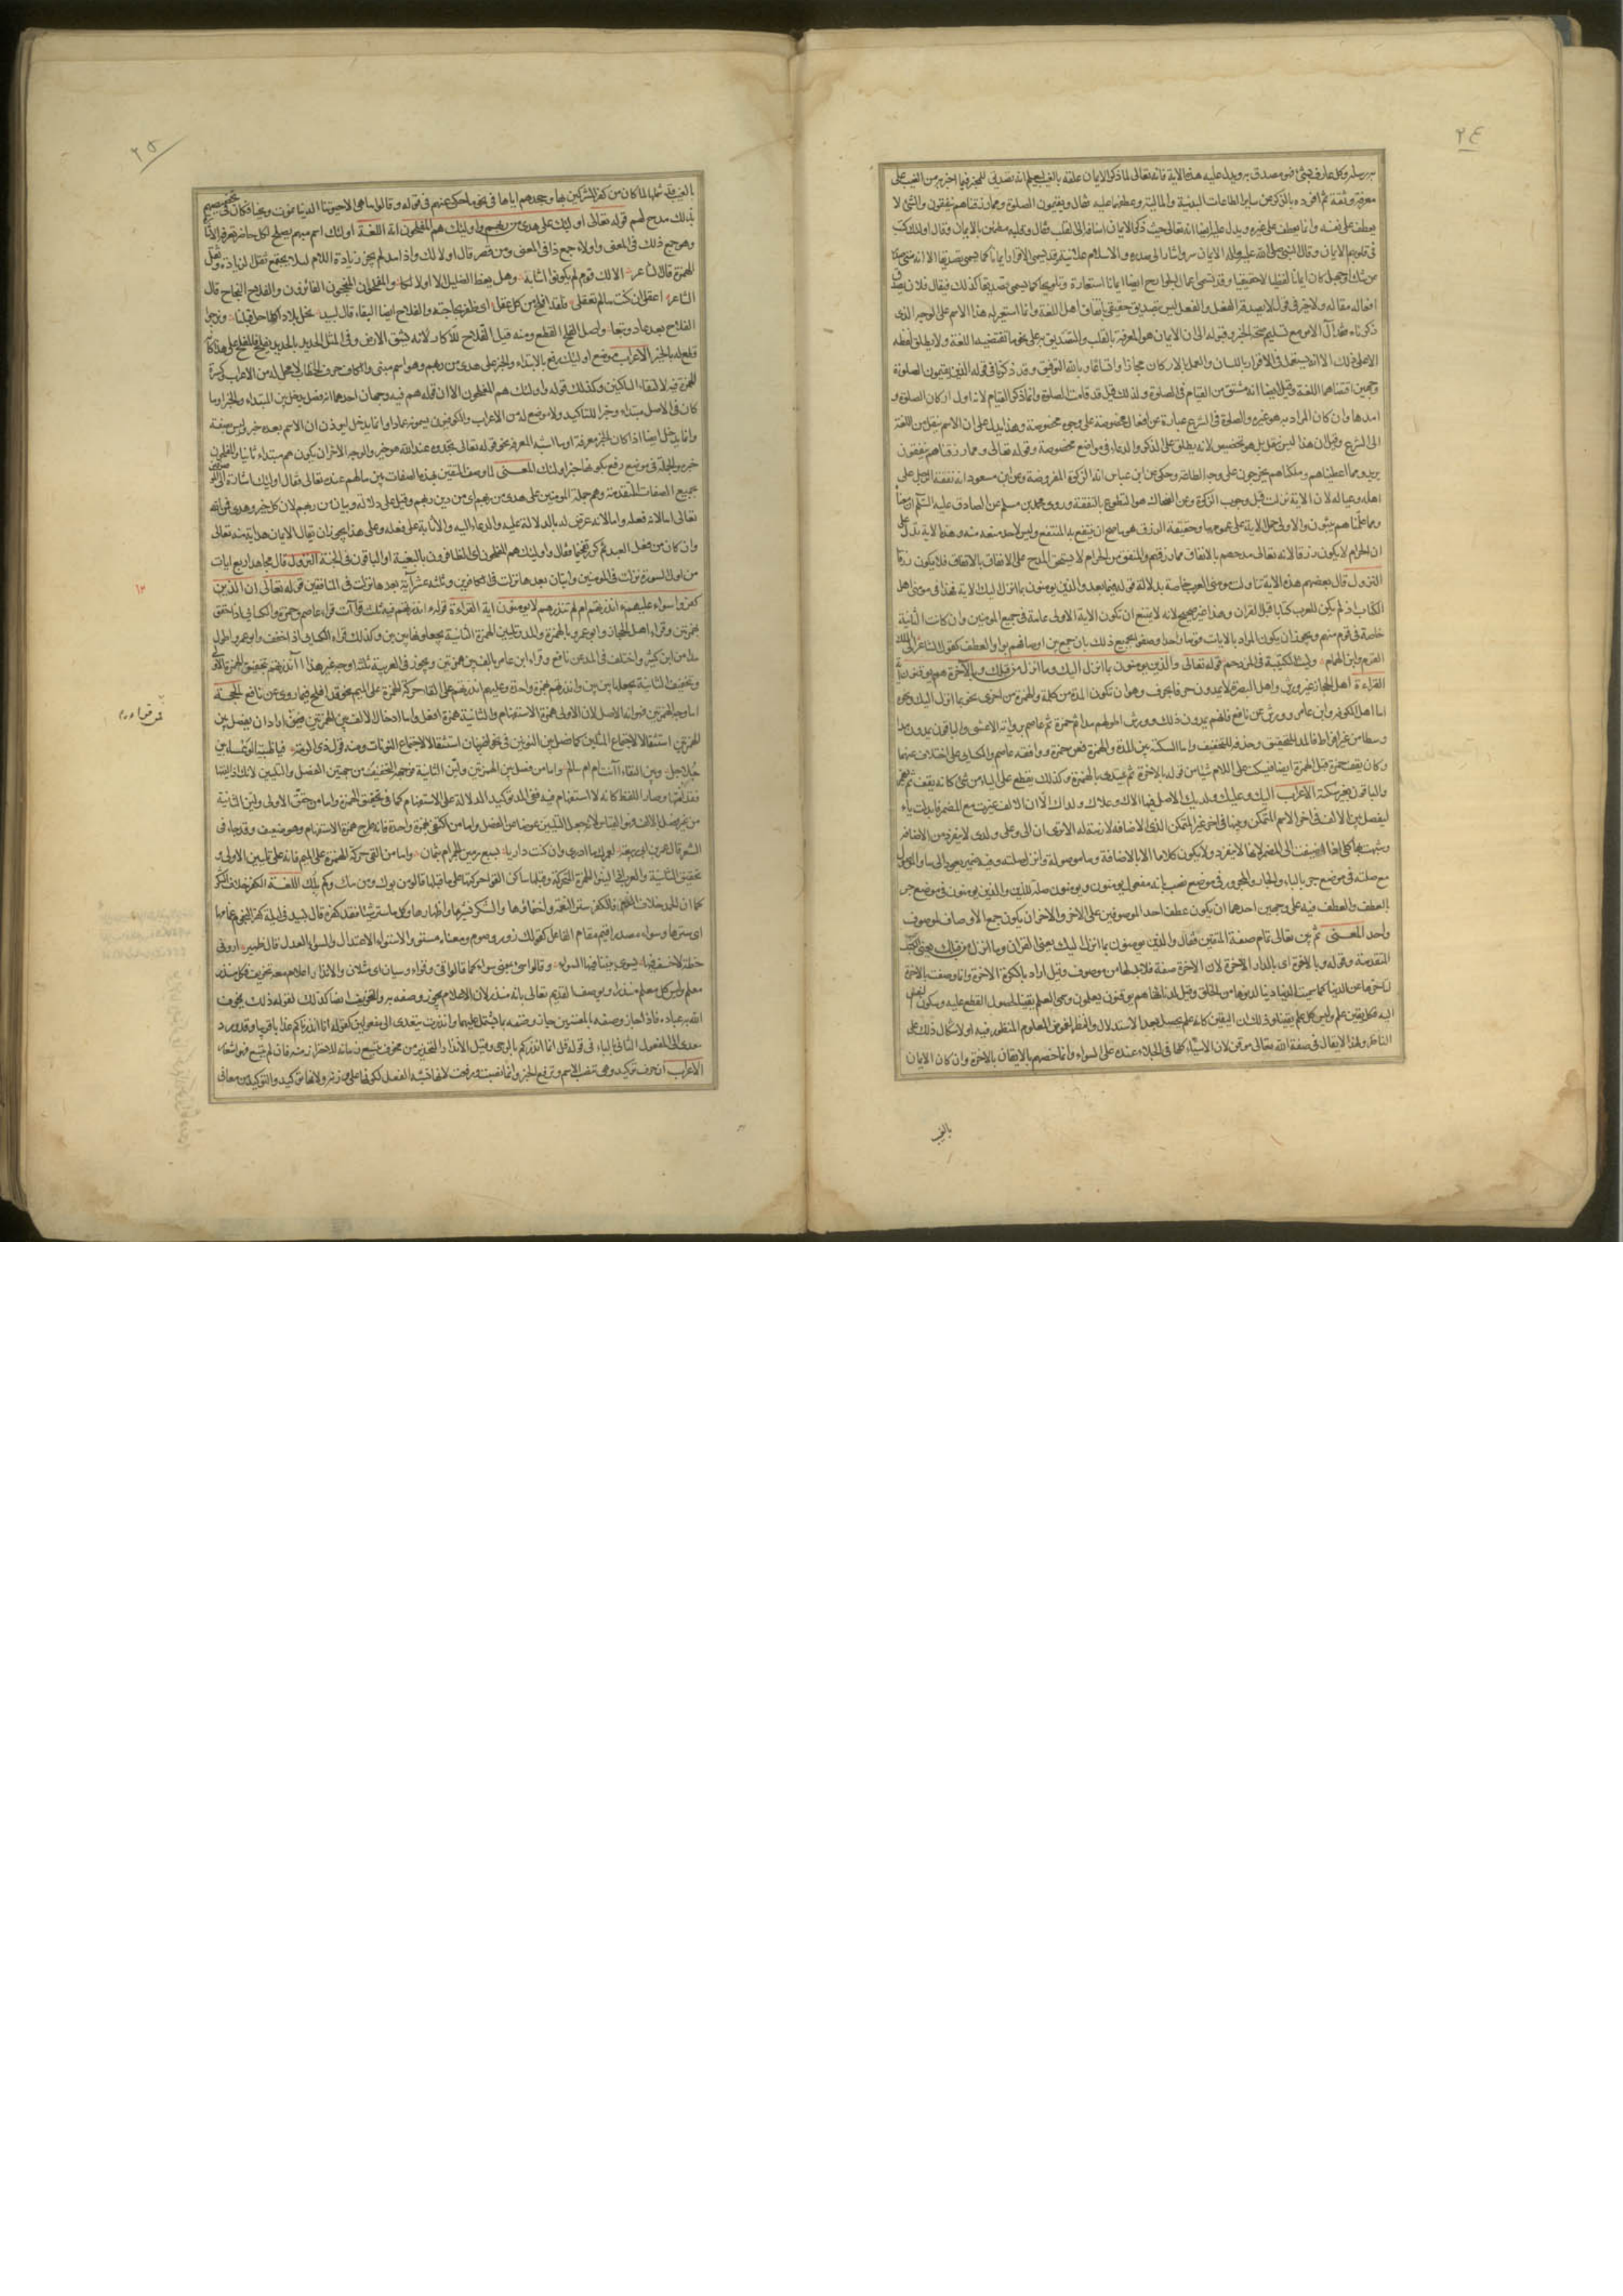 ٢٤
معرفة وثقة ثم افرده بالذكر عن ساير الطاعات البدنية والمالية وعطفهما عليه فقال ويقيمون الصلوة ومما رزقناهم ينفقون والشئ لا
يعطف على نفسه وانما يعطف على غيره ويدل عليه ايضا انه تعالى حيث ذكر الايمان اضافه الى القلب فقال وقلبه مطمئن بالايمان وقال اولئك كتب
في قلوبهم الايمان وقال النبي صلى الله عليه واله الايمان سر واشار الى صدره والاسلام علانية وقد يسمى الاقرار ايمانا كما يسمى تصديقا الا انه متى صدر
عن شك او جهل كان ايمانا لفظيا لا حقيقيا وقد تسمى اعمال الجوارح ايضا ايمانا استعارة وتلويحا كما يسمى تصديقا كذلك فيقال فلان يصدق
افعاله مقاله ولا خير في قول لا يصدقه الفعل والفعل ليس بتصديق حقيقي باتفاق اهل اللغة وانما استعير له هذا الاسم على الوجه الذي
ذكرناه فقد آل الامر مع تسليم صحة الخبر وقبوله الى ان الايمان هو المعرفة بالقلب والتصديق به على نحو ما تقتضيه اللغة ولا يطلق لفظه
الا على ذلك الا انه يستعمل في الاقرار باللسان والعمل بالاركان مجازا واتساعا وبالله التوفيق وقد ذكرنا في قوله الذين يقيمون الصلوة
وجهين اقتضاهما اللغة وقيل ايضا انه مشتق من القيام في الصلوة ولذلك قيل قد قامت الصلوة وانما ذكر القيام لانه اول اركان الصلوة و
امدها وان كان المراد به هو وغيره والصلوة في الشرع عبارة عن افعال مخصوصة على وجوه مخصوصة وهذا يدل على ان الاسم ينقل من اللغة
الى الشرع وقيل ان هذا ليس بنقل بل هو تخصيص لانه يطلق على الذكر والدعاء في مواضع مخصوصة وقوله تعالى ومما رزقناهم ينفقون
يريد ومما اعطيناهم وملكناهم يخرجون على وجه الطاعة وحكى عن ابن عباس انه الزكوة المفروضة وعن ابن مسعود انه نفقة الرجل على
اهله وعياله لان الاية نزلت قبل وجوب الزكوة وعن الضحاك هو التطوع بالنفقة وروى محمد بن مسلم عن الصادق عليه السلم ان معناه
ومما علمناهم يبثون والاولى حمل الاية على عمومها وحقيقة الرزق هو ما صح ان ينتفع به المنتفع وليس لاحد منعه منه وهذه الاية تدل على
ان الحرام لا يكون رزقا لانه تعالى مدحهم بالانفاق مما رزقهم والمنفق من الحرام لا يستحق المدح على الانفاق بالاتفاق فلا يكون رزقا
النزول قال بعضهم هذه الاية تناولت مومني العرب خاصة بدلالة قوله فيما بعد والذين يومنون بما انزل اليك الاية فهذا في مومني اهل
الكتاب اذ لم يكن للعرب كتاب قبل القران وهذا غير صحيح لانه لا يمتنع ان تكون الاية الاولى عامة في جميع المومنين وان كانت الثانية
خاصة في قوم منهم ويجوز ان يكون المراد بالايات قوما واحدا وصفوا بجميع ذلك بان جمع بين اوصافهم بواو العطف كقول الشاعر الى الملك
القرم وابن الهمام وليث الكتيبة في المزدحم قوله تعالى والذين يومنون بما انزل اليك وما انزل من قبلك وبالاخرة هم يوقنون
القراءة اهل الحجاز غير ورش واهل البصرة لا يمدون حرفا لحرف وهو ان تكون المدة من كلمة والهمزة من اخرى نحو بما انزل اليك ونحوه
اما اهل الكوفة وابن عامر وورش عن نافع فانهم يمدون ذلك وورش اطولهم مدا ثم حمزة ثم عاصم برواية الاعشى والباقون يمدون مدا
وسطا من غير افراط فالمد للتحقيق وحذفه للتخفيف واما السكتة بين المدة والهمزة فعن حمزة ووافقه عاصم والكسائي على اختلاف عنهما
وكان يقف حمزة قبل الهمزة ايضا فيسكت على اللام شيئا من قوله بالاخرة ثم يبتدئ بالهمزة وكذلك يقطع على الياء من شئ كانه يقف ثم يهمز
والباقون بغير سكتة الاعراب اليك وعليك ولديك الاصل فيها الاك وعلاك ولداك الا ان الالف غيرت مع المضمر فابدلت ياء
ليفصل بين الالف في اخر الاسم المتمكن وبينها في اخر غير المتمكن الذي الاضافة لازمة له الا ترى ان الى وعلى ولدى لا ينفرد من الاضافة
وشبهت بها كلا اذا اضيفت الى المضمر لانها لا ينفرد ولا يكون كلاما الا بالاضافة وما موصولة وانزل صلته وفيه ضمير يعود الى ما والموصول
مع صلته في موضع جر بالباء والجار والمجرور في موضع نصب بانه مفعول يومنون ويومنون صلة للذين والذين يومنون في موضع جر
بالعطف والعطف فيه على وجهين احدهما ان يكون عطف احد الموصوفين على الاخر والاخر ان يكون جمع الاوصاف لموصوف
واحد المعنى ثم بين تعالى تمام صفة المتقين فقال والذين يومنون بما انزل اليك يعني القران وما انزل من قبلك يعني الكتب
المتقدمة وقوله وبالاخرة اى بالدار الاخرة لان الاخرة صفة فلا بد لها من موصوف وقيل اراد به الكرة الاخرة وانما وصفت بالاخرة
لتاخرها عن الدنيا كما سميت الدنيا دنيا لدنوها من الخلق وقيل لدناءتها هم يوقنون يعلمون وسمى العلم يقينا لحصول القطع عليه وسكون النفس
اليه فكل يقين علم وليس كل علم يقينا وذلك ان اليقين كانه علم يحصل بعد الاستدلال والنظر لغموض المعلوم المنظور فيه او لاشكال ذلك على
الناظر ولهذا لا يقال في صفة الله تعالى موقن لان الاشياء كلها في الجلاء عنده على السواء وانما خصهم بالايقان بالاخرة وان كان الايمان
بالغيب
٢٥
بالغيب قد شملها لما كان من كفر المشركين بها وجحدهم اياها في نحو ما حكى عنهم في قوله وقالوا ما هى الا حيوتنا الدنيا نموت ونحيا فكان في تخصيصهم
بذلك مدح لهم قوله تعالى اولئك على هدى من ربهم واولئك هم المفلحون اية اللغة اولئك اسم مبهم يصلح لكل حاضر تعرفه الاشارة
وهو جمع ذلك في المعنى واولاء جمع ذا في المعنى ومن قصر قال اولا لك واذا مد لم يجز زيادة اللام لئلا يجتمع ثقل الزيادة وثقل
الهمزة قال الشاعر الا لك قوم لم يكونوا اشابة وهل يعظ الضليل الا اولا لكا والمفلحون المنجحون الفائزون والفلاح النجاح قال
الشاعر اعقلي ان كنت لما تعقلي ولقد افلح من كان عقل اى ظفر بحاجته والفلاح ايضا البقاء قال لبيد نحل بلادا كلها حل قبلنا ونرجو
الفلاح بعد عاد وتبعا واصل الفلح القطع ومنه قيل الفلاح للاكار لانه يشق الارض وفي المثل الحديد بالحديد يفلح فالمفلح على هذا كانه
قطع له بالخير الاعراب موضع اولئك رفع بالابتداء والخبر على هدى من ربهم وهو اسم مبني والكاف حرف خطاب لا محل له من الاعراب وكسرة
الهمزة فيه لالتقاء الساكنين وكذلك قوله واولئك هم المفلحون الا ان قوله هم فيه وجهان احدهما انه فصل يدخل بين المبتداء والخبر او ما
كان في الاصل مبتداء وخبرا للتاكيد ولا موضع له من الاعراب والكوفيون يسمونه عمادا وانما يدخل ليوذن ان الاسم بعده خبر وليس بصفة
وانما يدخل ايضا اذا كان الخبر معرفة او ما اشبه المعرفة نحو قوله تعالى تجدوه عند الله هو خيرا والوجه الاخر ان يكون هم مبتداء ثانيا والمفلحون
خبره والجملة في موضع رفع بكونها خبر اولئك المعنى لما وصف المتقين بهذه الصفات بين ما لهم عنده تعالى فقال اولئك اشارة الى الموصوفين
بجميع الصفات المتقدمة وهم جملة المومنين على هدى من ربهم اى من دين ربهم وقيل على دلالة وبيان من ربهم لان كل خير وهدى فمن الله
تعالى اما لانه فعله واما لانه عرض له بالدلالة عليه والدعاء اليه والاثابة على فعله وعلى هذا يجوز ان يقال الايمان هداية منه تعالى
وان كان من فعل العبد ثم كرر تفخيما فقال واولئك هم المفلحون اى الظافرون بالبغية او الباقون في الجنة النزول قال مجاهد اربع ايات
من اول السورة نزلت في المومنين وايتان بعدها نزلت في الكافرين وثلثة عشر آية بعدها نزلت في المنافقين قوله تعالى ان الذين
كفروا سواء عليهم ءانذرتهم ام لم تنذرهم لا يومنون اية القراءة قوله ءانذرتهم فيه ثلث قراآت قراء عاصم وحمزة والكسائي اذا حقق
بهمزتين وقراء اهل الحجاز وابو عمرو بالهمزة والمد وتليين الهمزة الثانية يجعلونها بين بين وكذلك قراءة الكسائي اذا خفف وابو عمرو اطول
مدا من ابن كثير واختلف في المد عن نافع وقراء ابن عامر بالف بين همزتين ويجوز في العربية ثلثة اوجه غير هذا أأنذرتهم بتحقيق الهمزة الاولى
وتخفيف الثانية بجعلها بين بين وانذرتهم بهمزة واحدة وعليهم انذرتهم على القاء حركة الهمزة على الميم نحو قد افلح فيما روى عن نافع الحجة
اما وجه الهمزتين فهو انه الاصل لان الاولى همزة الاستفهام والثانية همزة افعل واما ادخال الالف بين الهمزتين فمن اراد ان يفصل بين
الهمزتين استثقالا لاجتماع المثلين كما فصل بين النونين في نحو اضربنان استثقالا لاجتماع النونات ومنه قول ذى الرمة فيا ظبية الوعساء بين
جلاجل وبين النقاء أأنت ام ام سالم واما من فصل بين الهمزتين ولين الثانية فوجهه التخفيف من جهتين الفصل والتليين لانك اذا لينتها
فقد امتها وصار اللفظ كانه لا استفهام فيه ففي المد توكيد الدلالة على الاستفهام كما في تحقيق الهمزة واما من حقق الاولى ولين الثانية
من غير فصل الالف فهو القياس لانه جعل التليين عوضا من الفصل واما من اكتفى بهمزة واحدة فانه طرح همزة الاستفهام وهو ضعيف وقد جاء في
الشعر قال عمر بن ابي ربيعة لعمرك ما ادرى وان كنت داريا بسبع رمين الجمر ام بثمان واما من القى حركة الهمزة على الميم فانه على تليين الاولى و
تحقيق الثانية والعرب اذا لينوا الهمزة المتحركة وقبلها ساكن القوا حركتها على ما قبلها قالوا من بوك ومن مك وكم بلك اللغة الكفر خلاف الشكر
كما ان الحمد خلاف الذم فالكفر ستر النعمة واخفاؤها والشكر نشرها واظهارها وكل ما ستر شيئا فقد كفره قال لبيد في ليلة كفر النجوم غمامها
اى سترها وسواء مصدر اقيم مقام الفاعل كقولك زور وصوم ومعناه مستو والاستواء الاعتدال والسواء العدل قال زهير اروني
خطة لا خسف فيها يسوى بيننا فيها السواء وقالوا سى بمعنى سواء كما قالوا قى وقواء وسيان اى مثلان والانذار اعلام معه تخويف فكل منذر
معلم وليس كل معلم منذرا ويوصف القديم تعالى بانه منذر لان الاعلام يجوز وصفه به والتخويف ايضا كذلك لقوله ذلك يخوف
الله به عباده فاذا جاز وصفه بالمعنيين جاز وصفه بما يشتمل عليهما وانذرت يتعدى الى مفعولين كقوله انا انذرناكم عذابا قريبا وقد ورد
معدى الى المفعول الثاني بالباء في قوله قل انما انذركم بالوحى وقيل الانذار التحذير من مخوف يتسع زمانه للاحتراز منه فان لم يتسع فهو اشعار
الاعراب ان حرف توكيد وهى تنصب الاسم وترفع الخبر وانما نصبت ورفعت لانها تشبه الفعل لكونها على وزنه ولانها توكيد والتوكيد من معاني
١٣